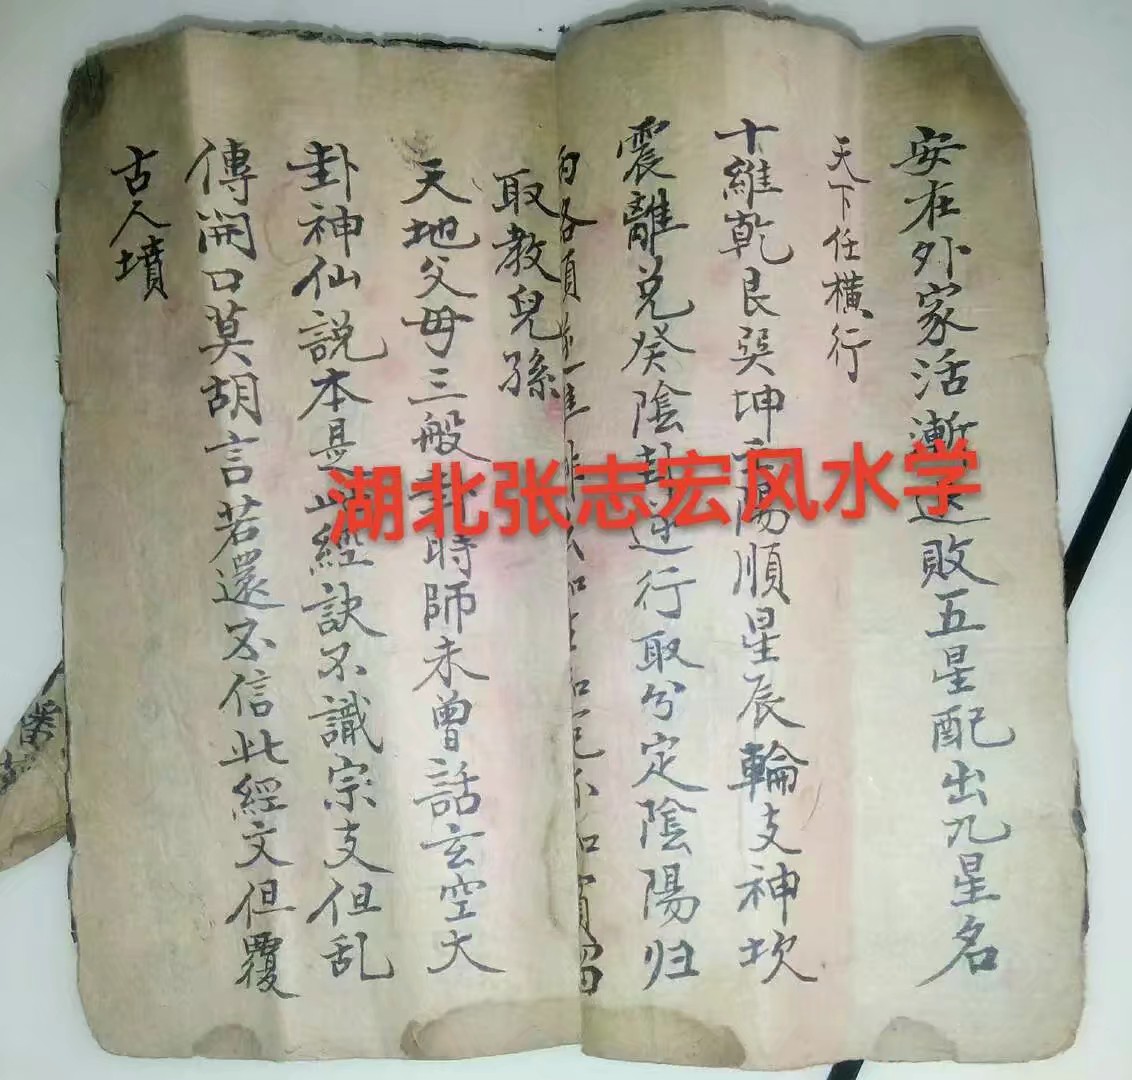 安在外家活漸退敗五星配出九星名
天下任橫行
十維乾艮巽坤陽順星辰輪支神坎
震離兑癸陰卦逆行取分定陰陽归
向各順
取教兒孫
天地父毋三般卦時師未曾話玄空大
卦神仙説本是此經訣不識宗支但乱
傳開口莫胡言若還不信此經文但覆
古人墳
湖北张志宏风水学